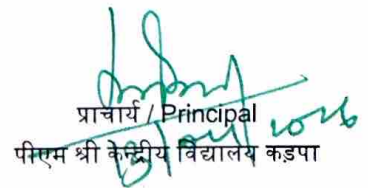 प्राचार्य / Principal
पीएम श्री केन्द्रीय विद्यालय कड़पा